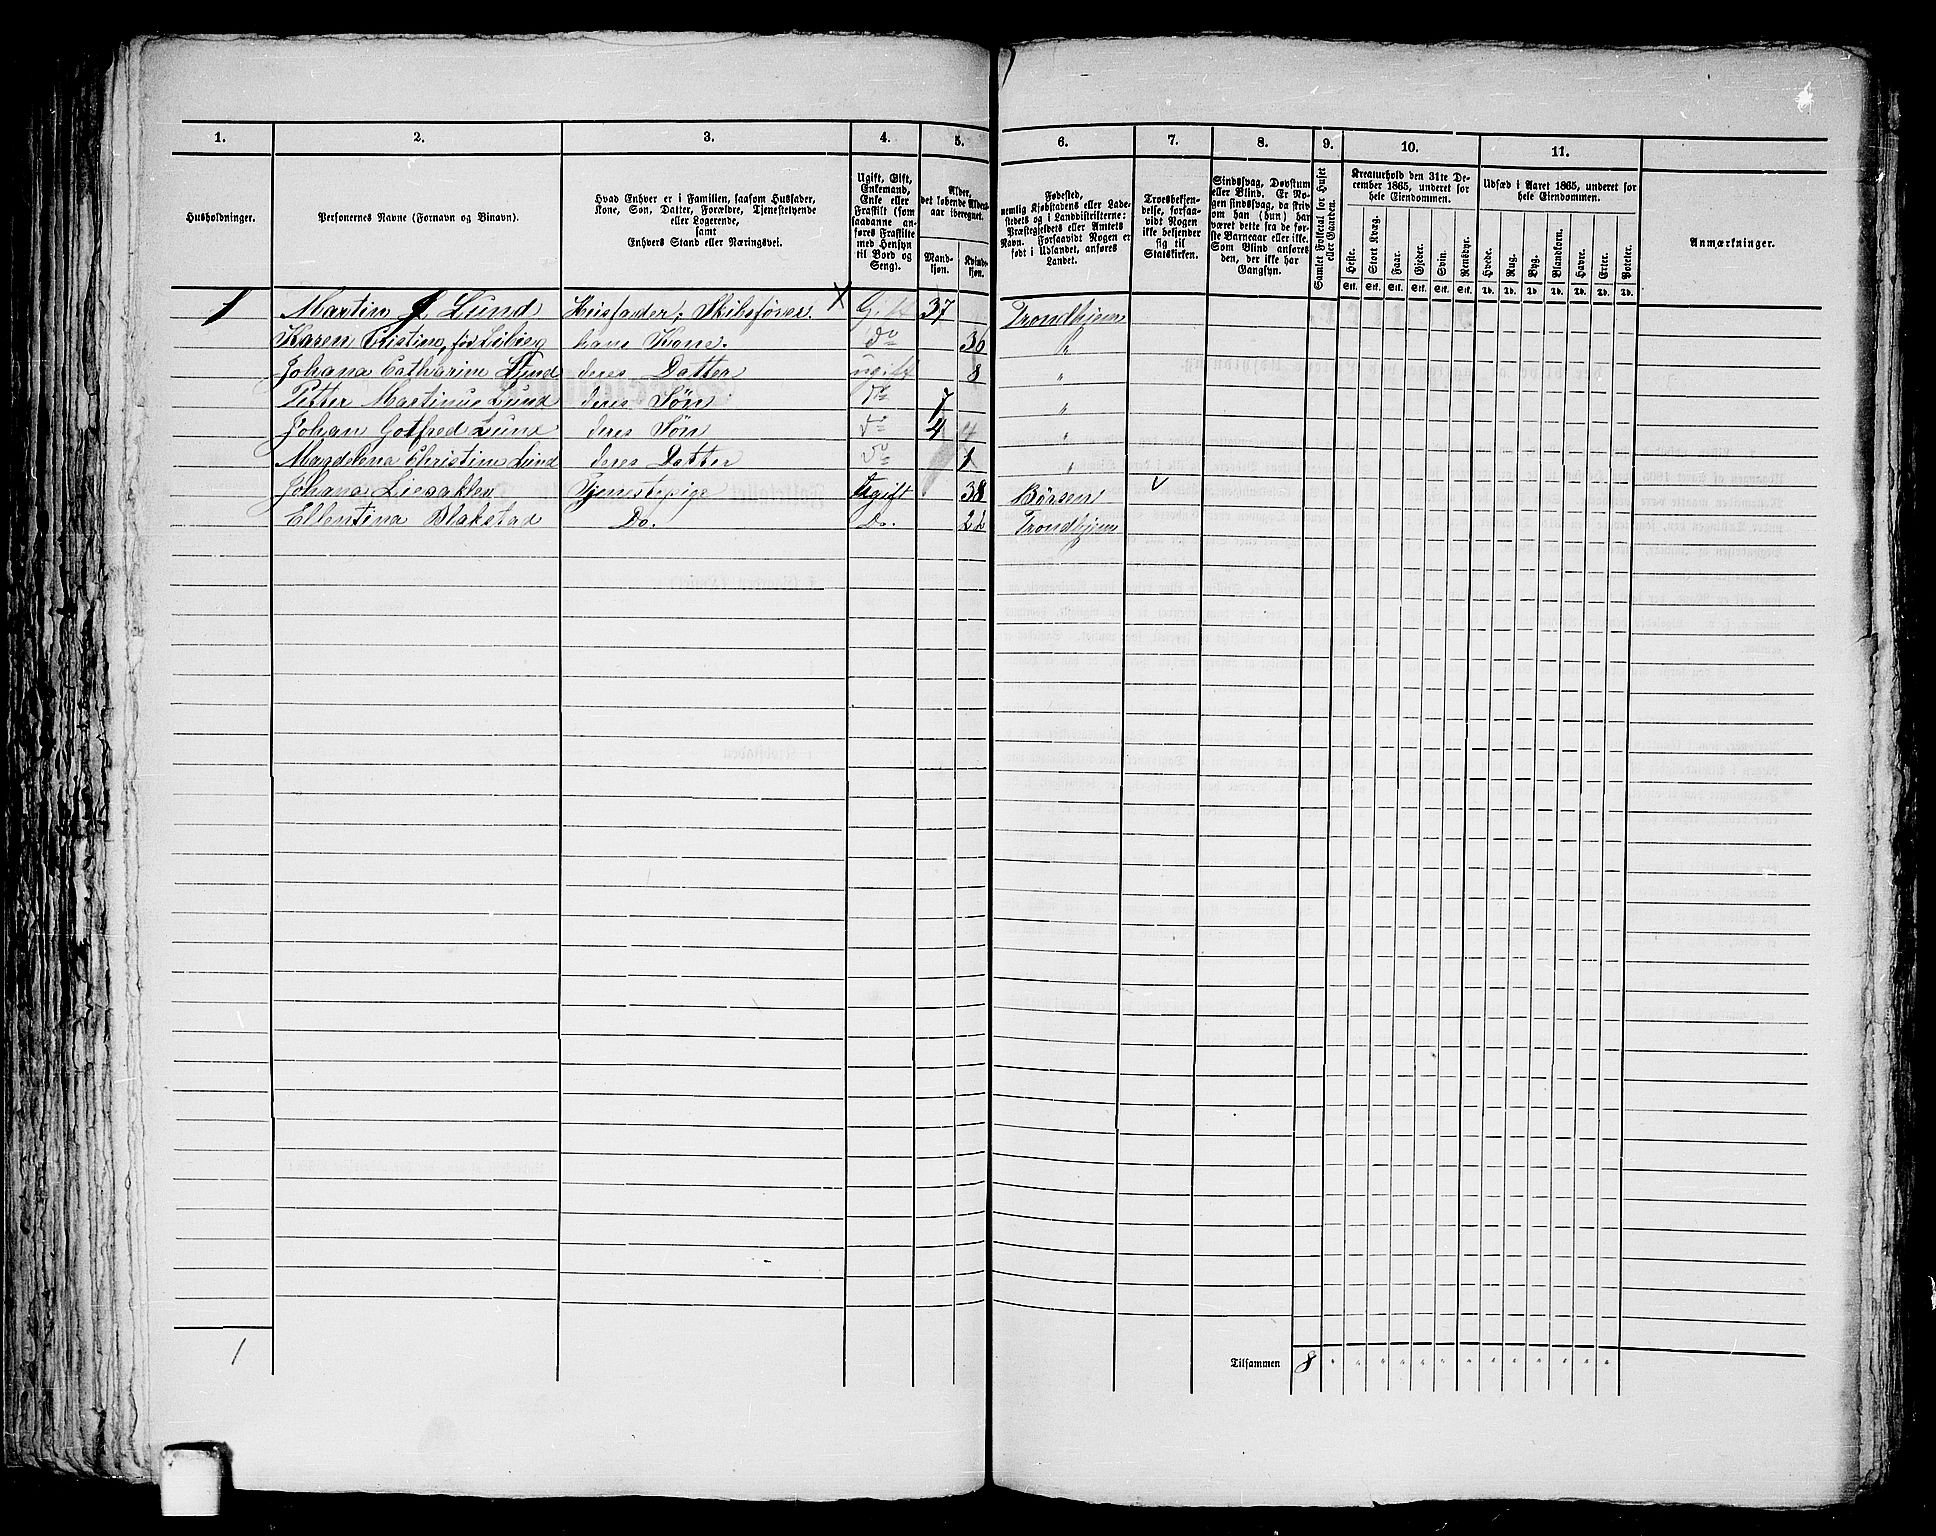 1. 2. 3. 4. 5. 6. 7. 8. 9. 10. 11.
Husholdninger.
Personernes Navne (Fornavn og Binavn).
Hvad Enhver er i Familien, saasom Husfader,
Kone, Søn, Datter, Forældre, Tjenestetyende
eller Logerende,
samt
Enhvers Stand eller Næringsvei.
Ugift, Gift,
Enkemand,
Enke eller
Fraskilt (som
saadanne an-
føres Fraskilte
med Hensyn
til Bord og
Seng).
Alder,
det løbende Alders-
aar iberegnet.
Mand-
kjøn.
Kvind-
kjøn.
Fødested,
nemlig Kjøbstadens eller Lade-
stedets og i Landdistrikterne:
Præstegjeldets eller Amtets
Navn. Forsaavidt Nogen er
født i Udlandet, anføres
Landet.
Troesbekjen-
delse, forsaa-
vidt Nogen
ikke bekjender
sig til
Statskirken.
Sindssvag, Døvstum
eller Blind. Er No-
gen sindssvag, da skriv
om han (hun) har
været dette fra de før-
ste Barneaar eller ikke.
Som Blind anføres
den, der ikke har
Gangsyn.
Samlet Folketal for Huset
eller Gaarden.
Kreaturhold den 31te De-
cember 1865, underet for
hele Eiendommen.
Heste. Stort Kvæg. Faar. Gjeder. Svin. Rensdyr.
Stk. Stk. Stk. Stk. Stk. Stk.
Udsæd i Aaret 1865, underet for
hele Eiendommen.
Hvede. Rug. Byg. Blandkorn. Havre. Erter. Poteter.
Td. Td. Td. Td. Td. Td. Td.
Anmærkninger.
1 Martin J. Lund Husfader, Skibsfører. X Gift 37 Trondhjem
Karen Cristien, fød hans Kone. do 36 "
Johana Catharine Lund deres Datter ugift 8 "
Petter Martinus Lund deres Søn do 7 "
Johan Gotfred Lund deres Søn do 4 4 "
Magdelena Christine Lund deres Datter do 1 "
Johana Tjenestepige Ugift 38 Børsen v
Ellentina Blakstad Do. Do. 22 Trondhjem
1
Tilsammen 8 " " " " " " " " " " " " "